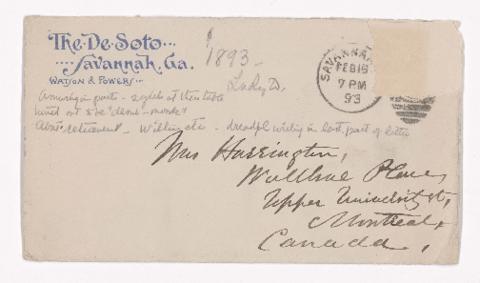 The De Soto...
....Savannah, Ga.
WATSON & POWERS...
1893 -
Lady D.
SAVANNAH
FEB 16
7 PM
93
Amusing in parts - at their table
turned out to be
retirement - Willing etc - dreadful writing in last part of letter
Mrs Harrington,
Wallbrae Place,
Upper University St,
Montreal,
Canada,